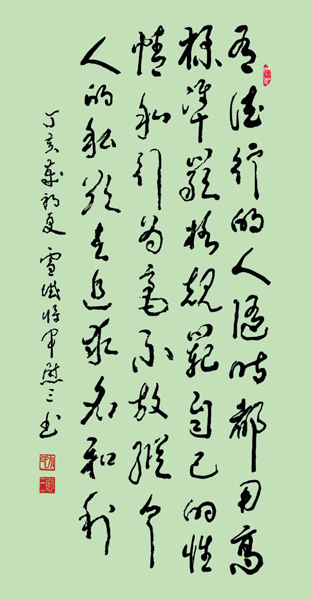 有德行的人随时都用高
标準严格规範自己的性
情和行为毫不放纵个
人的私欲去追求名和利
丁亥年初夏 雪 将军 三书